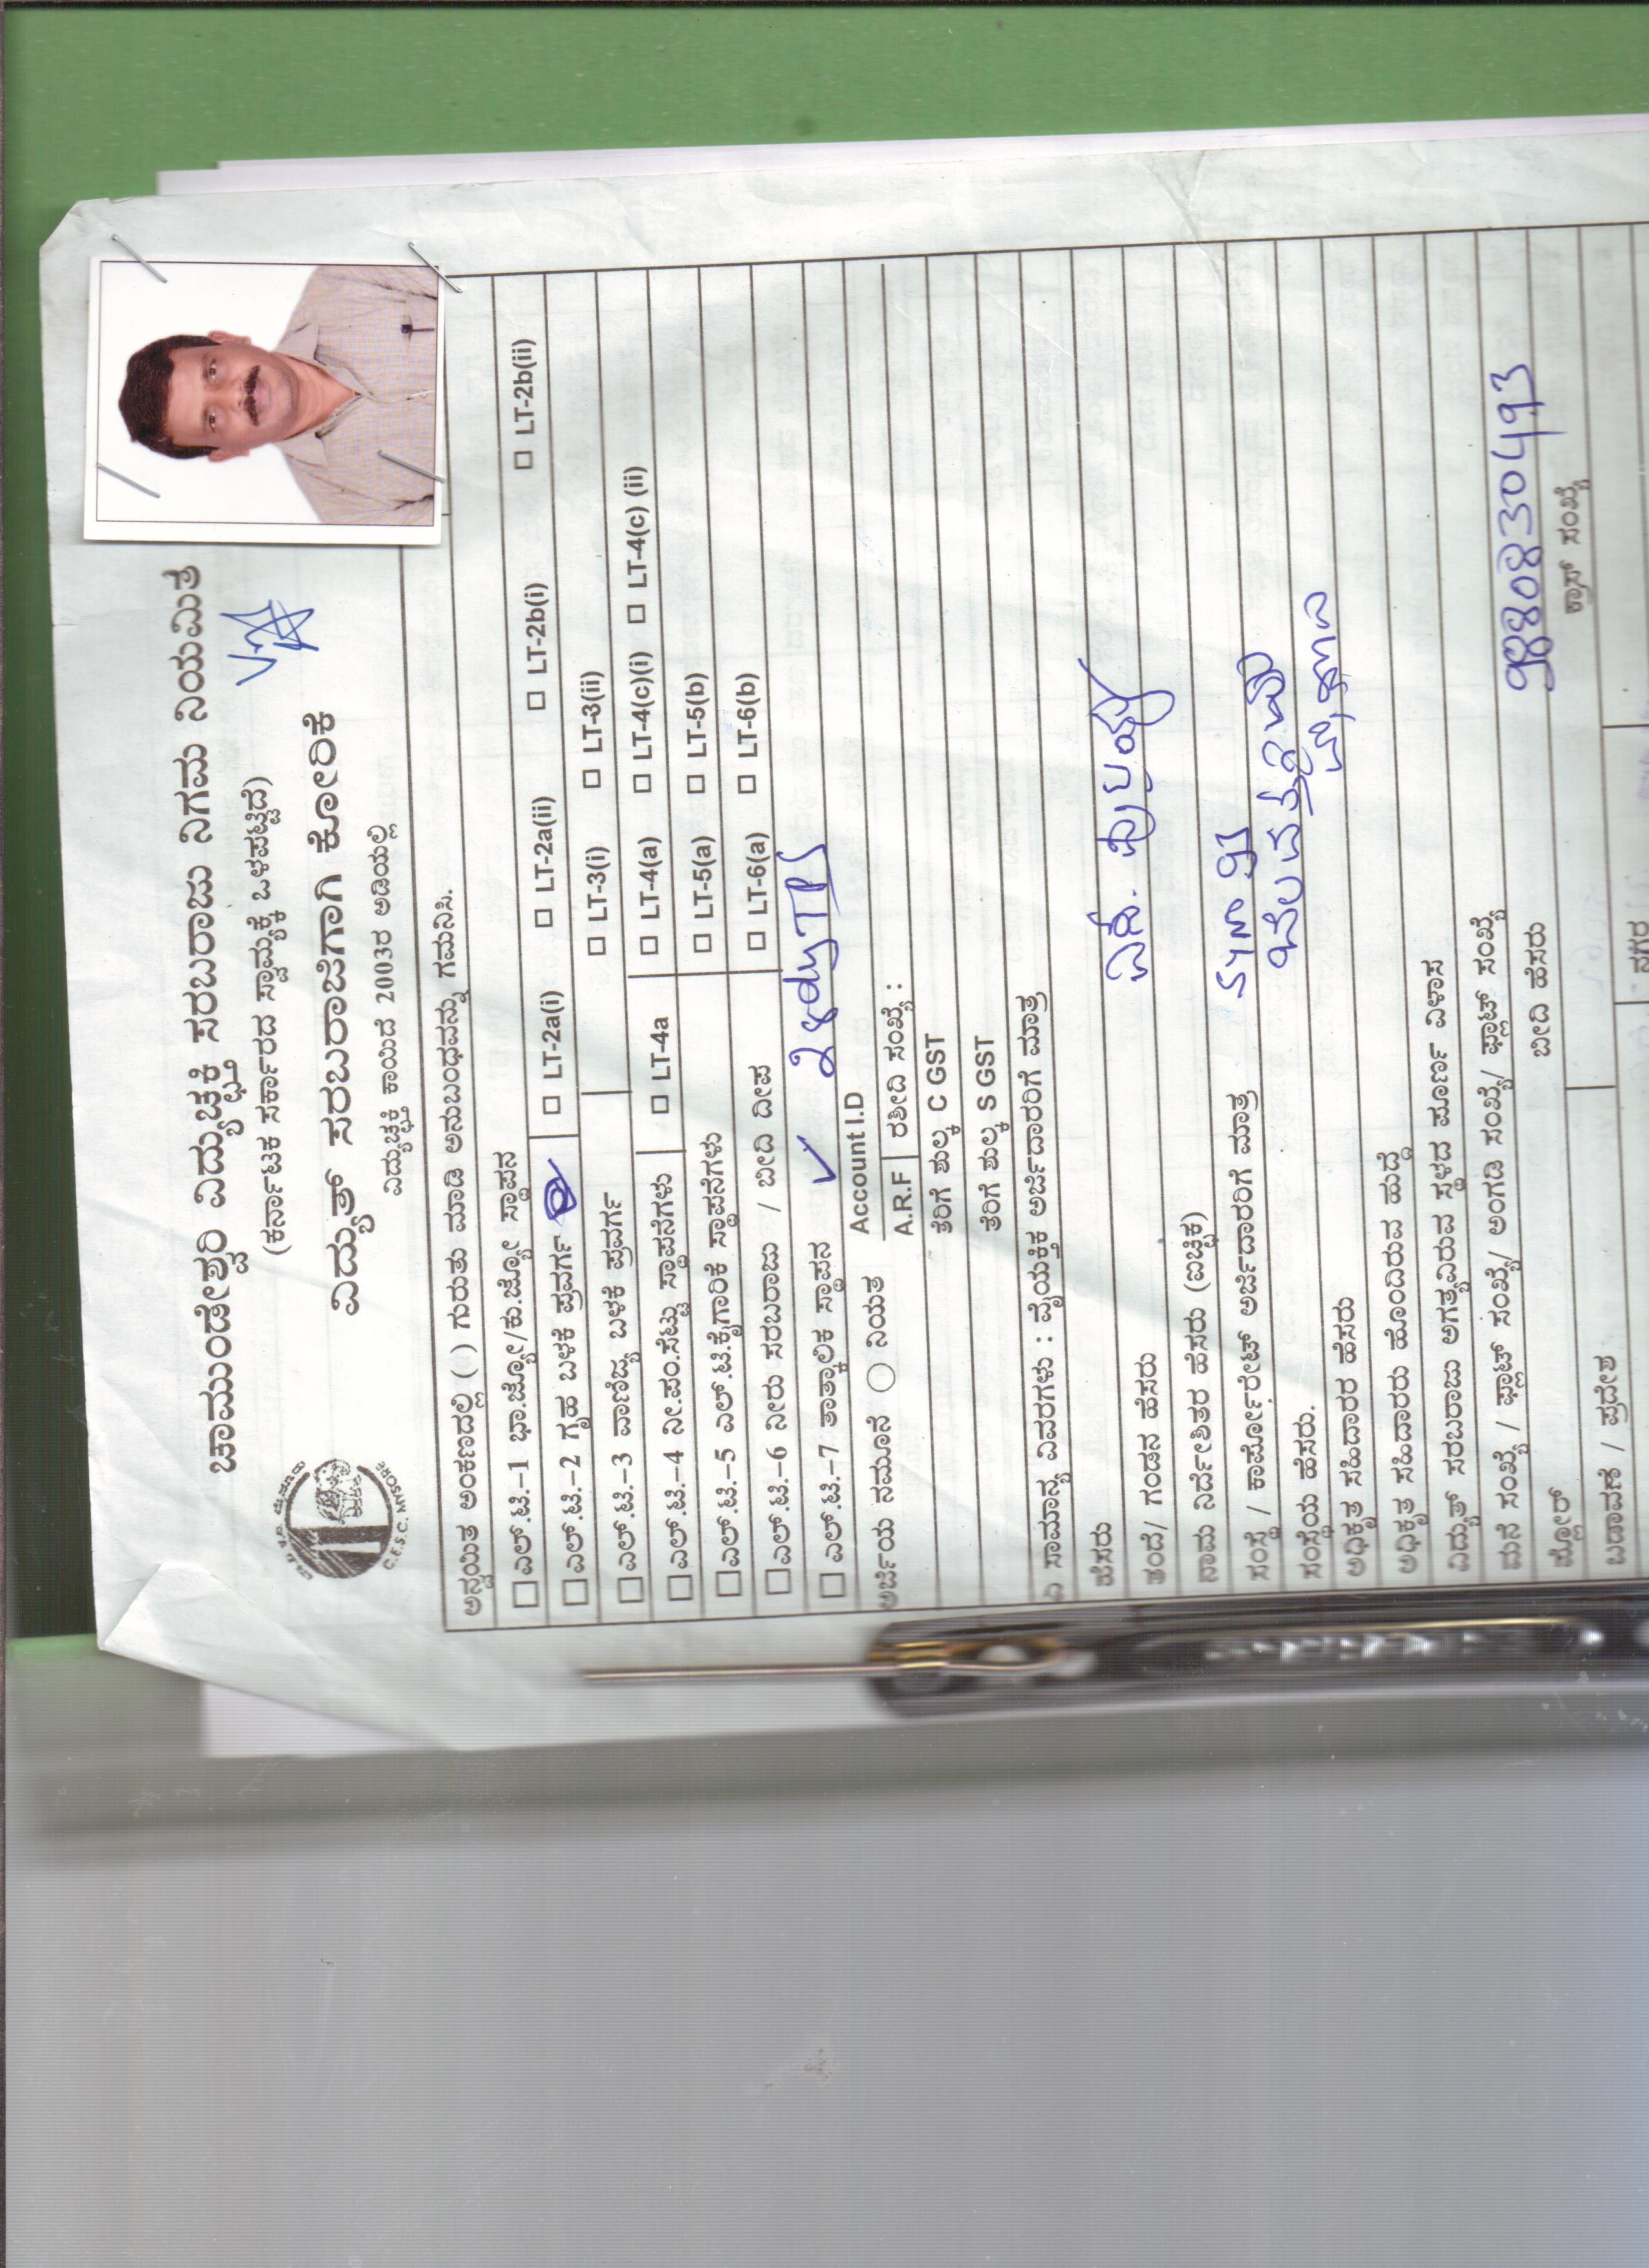 ಚಾಮುಂಡೇಶ್ವರಿ ವಿದ್ಯುಚ್ಛಕ್ತಿ ಸರಬರಾಜು ನಿಗಮ ನಿಯಮಿತ
(ಕರ್ನಾಟಕ ಸರ್ಕಾರದ ಸ್ವಾಮ್ಯಕ್ಕೆ ಒಳಪಟ್ಟಿದೆ)
ವಿದ್ಯುತ್ ಸರಬರಾಜಿಗಾಗಿ ಕೋರಿಕೆ
ವಿದ್ಯುಚ್ಛಕ್ತಿ ಕಾಯಿದೆ 2003ರ ಅಡಿಯಲ್ಲಿ
C.E.S.C. MYSORE
ಅನ್ವಯಿತ ಅಂಕಣದಲ್ಲಿ ( ) ಗುರುತು ಮಾಡಿ ಅನುಬಂಧವನ್ನು ಗಮನಿಸಿ.
□ ಎಲ್.ಟಿ.–1 ಭಾ.ಜ್ಯೋ/ಕು.ಜ್ಯೋ ಸ್ಥಾಪನ
□ ಎಲ್.ಟಿ.–2 ಗೃಹ ಬಳಕೆ ಪ್ರವರ್ಗ □ LT-2a(i) □ LT-2a(ii) □ LT-2b(i) □ LT-2b(ii)
□ ಎಲ್.ಟಿ.–3 ವಾಣಿಜ್ಯ ಬಳಕೆ ಪ್ರವರ್ಗ □ LT-3(i) □ LT-3(ii)
□ ಎಲ್.ಟಿ.–4 ನೀ.ಪಂ.ಸೆಟ್ಟು ಸ್ಥಾಪನೆಗಳು □ LT-4a □ LT-4(a) □ LT-4(c)(i) □ LT-4(c) (ii)
□ ಎಲ್.ಟಿ.–5 ಎಲ್.ಟಿ.ಕೈಗಾರಿಕೆ ಸ್ಥಾಪನೆಗಳು □ LT-5(a) □ LT-5(b)
□ ಎಲ್.ಟಿ.–6 ನೀರು ಸರಬರಾಜು / ಬೀದಿ ದೀಪ □ LT-6(a) □ LT-6(b)
□ ಎಲ್.ಟಿ.–7 ತಾತ್ಕಾಲಿಕ ಸ್ಥಾಪನ ✓
Account I.D
ಅರ್ಜಿಯ ನಮೂನೆ ○ ನಿಯತ A.R.F ರಶೀದಿ ಸಂಖ್ಯೆ :
ತೆರಿಗೆ ಶುಲ್ಕ C GST
ತೆರಿಗೆ ಶುಲ್ಕ S GST
ಸಾಮಾನ್ಯ ವಿವರಗಳು : ವೈಯಕ್ತಿಕ ಅರ್ಜಿದಾರರಿಗೆ ಮಾತ್ರ
ಹೆಸರು
ತಂದೆ/ ಗಂಡನ ಹೆಸರು
ನಾಮ ನಿರ್ದೇಶಿತರ ಹೆಸರು (ಐಚ್ಛಿಕ)
ಸಂಸ್ಥೆ / ಕಾರ್ಪೋರೇಟ್ ಅರ್ಜಿದಾರರಿಗೆ ಮಾತ್ರ
ಸಂಸ್ಥೆಯ ಹೆಸರು.
ಅಧಿಕೃತ ಸಹಿದಾರರ ಹೆಸರು
ಅಧಿಕೃತ ಸಹಿದಾರರು ಹೊಂದಿರುವ ಹುದ್ದೆ
ವಿದ್ಯುತ್ ಸರಬರಾಜು ಅಗತ್ಯವಿರುವ ಸ್ಥಳದ ಪೂರ್ಣ ವಿಳಾಸ
ಮನೆ ಸಂಖ್ಯೆ / ಫ್ಲಾಟ್ ಸಂಖ್ಯೆ/ ಅಂಗಡಿ ಸಂಖ್ಯೆ/ ಪ್ಲಾಟ್ ಸಂಖ್ಯೆ 9880830493
ಫ್ಲೋರ್ ಬೀದಿ ಹೆಸರು ಕ್ರಾಸ್ ಸಂಖ್ಯೆ
ಬಡಾವಣೆ / ಪ್ರದೇಶ ನಗರ